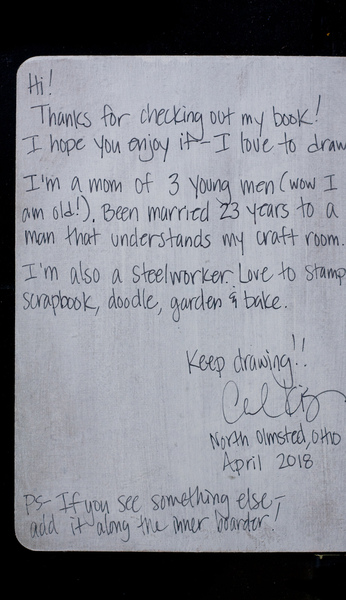 Hi!
Thanks for checking out my book!
I hope you enjoy it - I love to draw
I'm a mom of 3 young men (wow I
am old!). Been married 23 years to a
man that understands my craft room.
I'm also a Steelworker. Love to stamp
scrapbook, doodle, garden & bake.
Keep drawing!!
North Olmsted, OHIO
April 2018
PS- If you see something else,-
add it along the inner boarder!